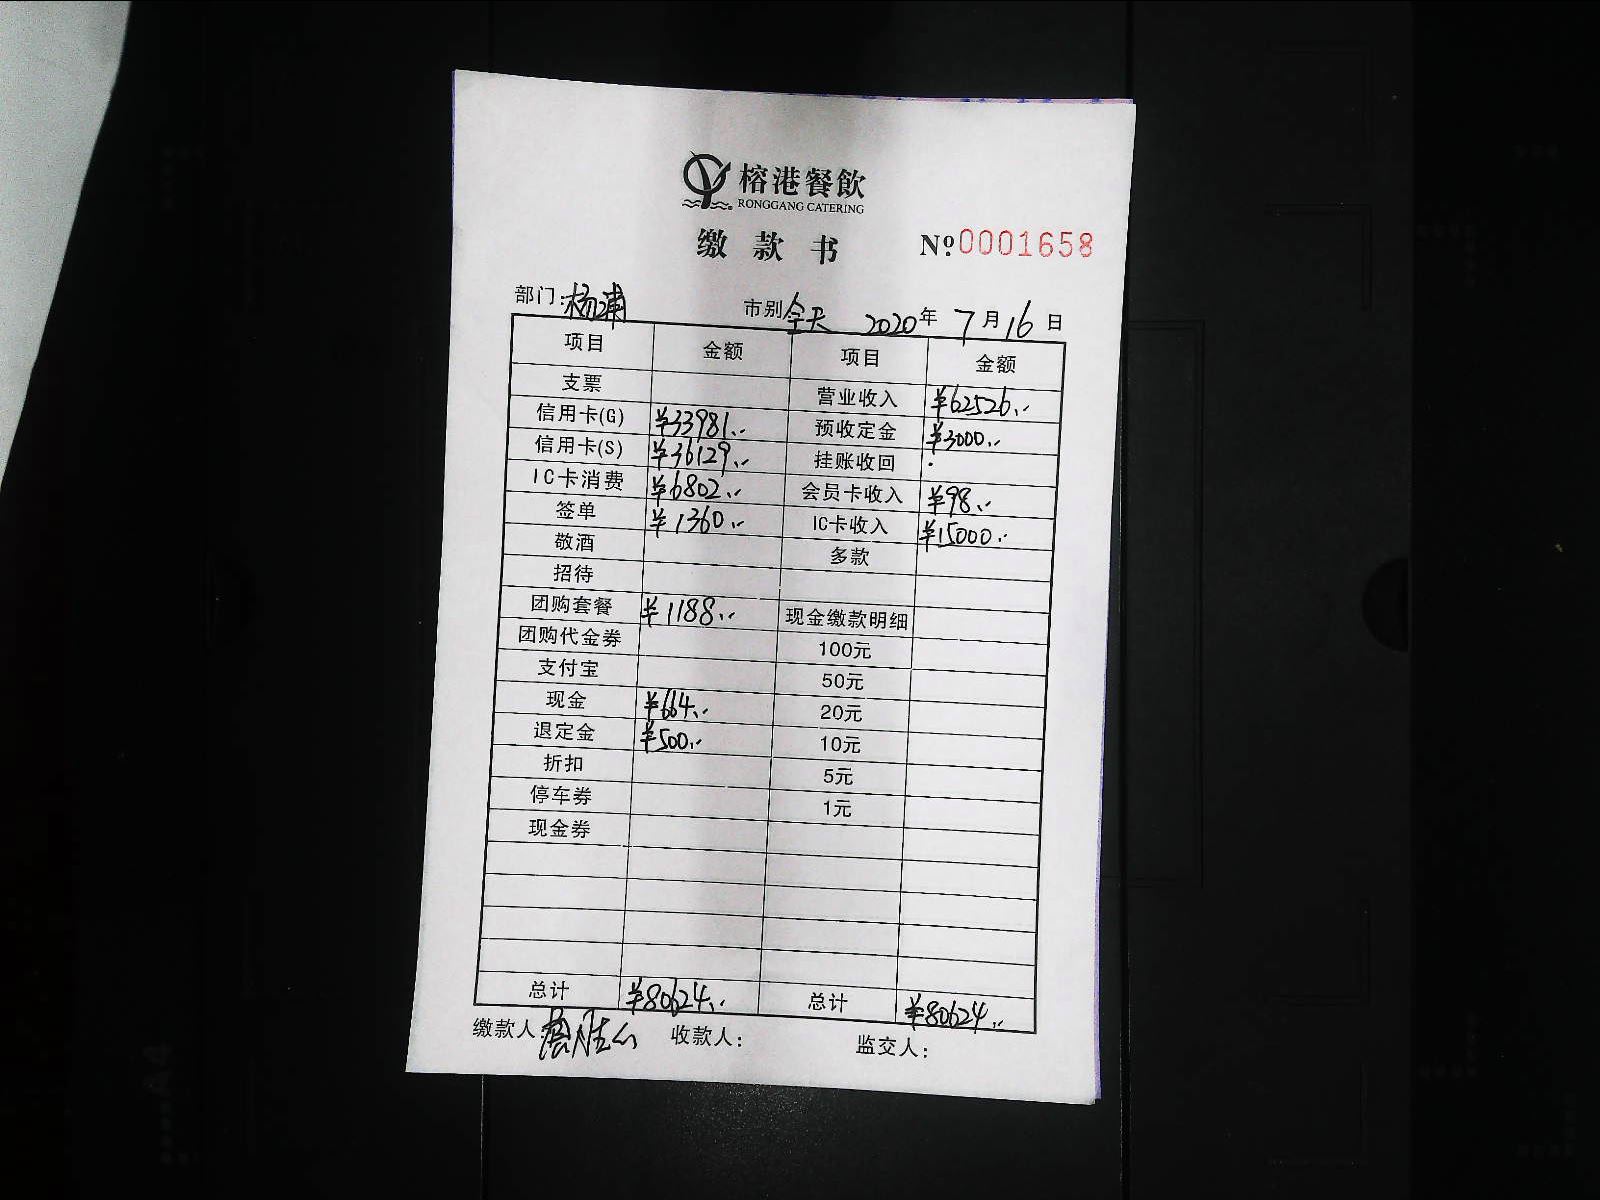 榕港餐飲
RONGGANG CATERING
缴款书 №0001658
部门:杨浦 市别全天 2020年7月16日
项目 金额 项目 金额
支票 营业收入 ¥62526.--
信用卡(G) ¥33981.-- 预收定金 ¥3000.--
信用卡(S) ¥36129.-- 挂账收回
IC卡消费 ¥6802.-- 会员卡收入 ¥98.--
签单 ¥1360.-- IC卡收入 ¥15000.--
敬酒 多款
招待
团购套餐 ¥1188.-- 现金缴款明细
团购代金券 100元
支付宝 50元
现金 ¥664.-- 20元
退定金 ¥500.-- 10元
折扣 5元
停车券 1元
现金券
总计 ¥80624.-- 总计 ¥80624.--
缴款人: 收款人: 监交人: